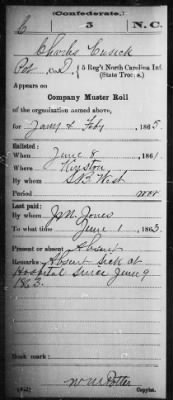 (Confederate.)
C 3 N.C.
Charles Cusick
Pvt Co. I. 5 Reg't North Carolina Inf.
(State Troops.)
Appears on
Company Muster Roll
of the organization named above,
for Jany & Feby , 1865
Enlisted:
When June 8 , 1861
Where Winston
By whom West
Period war
Last paid:
By whom J.M. Jones
To what time June 1 , 1863
Present or absent Absent
Remarks: Absent Sick at
Hospital Since June 9
1863.
Book mark:
Wm Potter
Copyist.